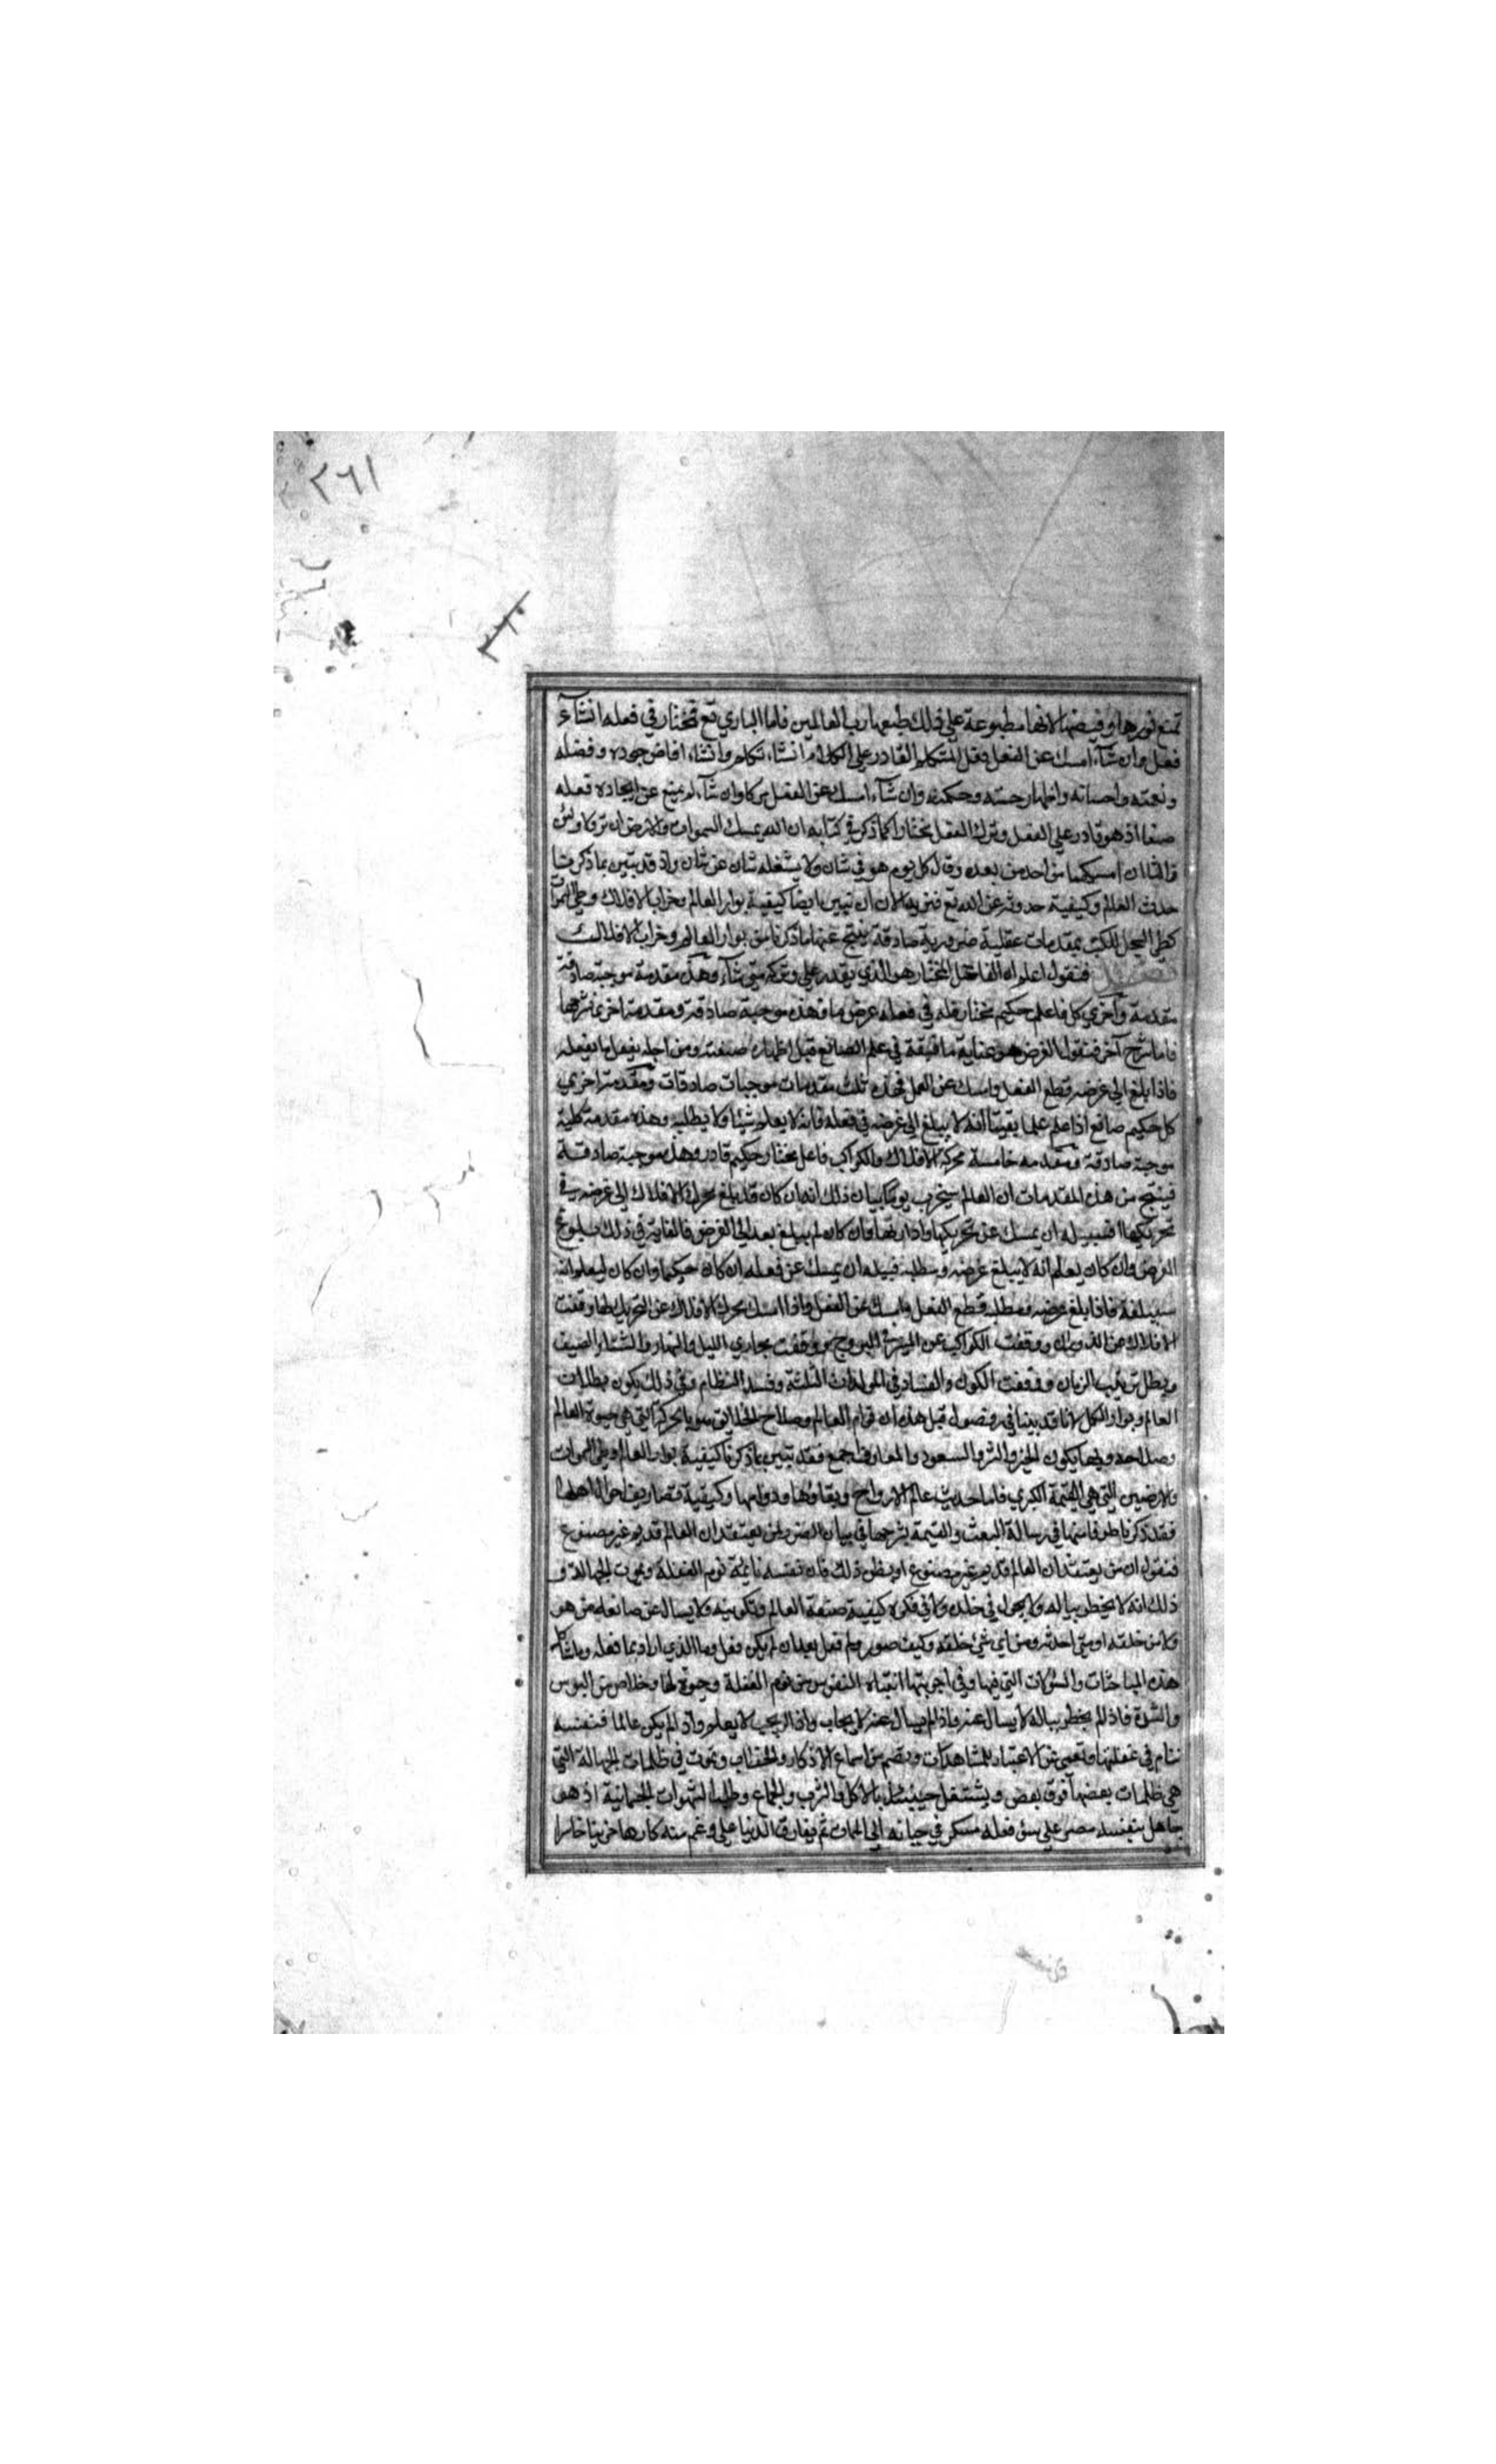 ٢٦١
تمنع نورها وفيضها لانها مطبوعة علي ذلك طبعها رب العالمين فاما الباري تع فمختار في فعله ان شآء
فعل وان شآء امسك عن الفعل مثل المتكلم القادر علي الكلام ان شاء تكلم وان شاء افاض جوده وفضله
ونعمته واحسانه واظهار حسته وحكمته وان شآء امسك عن الفعل وان شآء لم يمنع عن ايجاده فعله
صنعا اذ هو قادر علي الفعل وترك الفعل مختارا كما ذكر في كتابه ان الله يمسك السموات والارض ان تزولا ولئن
زالتا ان امسكهما من احد من بعده وقال كل يوم هو في شان ولا يشغله شان عن شان واذ قد تبين بما ذكرنا
حدث العالم وكيفية حدوثه عن الله تع فنريد الان ان نبين ايضا كيفية بوار العالم وخراب الافلاك وطي السموات
كطي السجل للكتب بمقدمات عقلية ضرورية صادقة ينتج عنها ما ذكرنا من بوار العالم وخراب الافلاك
فصل فنقول اعلم ان الفاعل المختار هو الذي يقدر علي وتركه متي شآء وهذه مقدمة موجبة صادقة
مقدمة وآخري كل فاعل حكيم مختار فله في فعله غرض ما وهذه موجبة صادقة ومقدمة اخري نشرحها
فاما شرح آخر فنقول الغرض هو عناية ما سابقة في علم الصانع قبل اظهاره صنعته ومن اجله يفعل ما يفعله
فاذا بلغ الي غرضه قطع الفعل وامسك عن العمل فهذه ثلث مقدمات موجبات صادقات ومقدمة اخري
كل حكيم صانع اذا علم علما يقينا انه لا يبلغ الي غرضه في فعله فانه لا يعلم شيئا ولا يطلبه وهذه مقدمة كلية
موجبة صادقة ومقدمه خامسة محركة الافلاك والكواكب فاعل مختار حكيم قادر وهذه موجبة صادقة
فينتج من هذه المقدمات ان العالم سيخرب يوما بيان ذلك انه ان كان قد بلغ محرك الافلاك الي غرضه في
تحريكها فسبيله ان يمسك عن تحريكها وادارتها وان كان لم يبلغ بعد الي الغرض فالغاية في ذلك بلوغ
الغرض وان كان يعلم انه لا يبلغ غرضه ومطلبه فسبيله ان يمسك عن فعله ان كان حكيما وان كان ليعلم انه
سيبلغه فاذا بلغ غرضه ومطلبه قطع الفعل وامسك عن الفعل واذا امسك محرك الافلاك عن التحريك لها وقفت
الافلاك عن الدوران ووقفت الكواكب عن المسير في البروج ووقفت مجاري الليل والنهار والشتاء والصيف
وبطل ترتيب الزمان ووقفت الكون والفساد في المولدات الثلثة وفسد النظام وفي ذلك يكون بطلان
العالم وبوار الكل لانا قد بينا في فصول قبل هذه ان قوام العالم وصلاح الخلايق هو بالحركة التي هي حيوة العالم
وصلاحه وبها يكون الخير والشر والسعود والمعارف اجمع فقد تبين بما ذكرنا كيفية بوار العالم وطي السموات
والارضين التي هي القيمة الكبري فاما حديث عالم الارواح وبقاؤها ودوامها وكيفية تصاريف احوال اهلها
فقد ذكرنا طرفا منها في رسالة البعث والقيمة بشرحها في بيان الضرر لمن يعتقد ان العالم قديم غير مصنوع
فنقول ان من يعتقد ان العالم قديم غير مصنوع او يظن ذلك فان نفسه نايمة نوم الغفلة ويموت الجهالة و
ذلك انه لا يخطر بباله ولا يجول في خلده ولا في فكره كيفية صنعة العالم وتكوينه ولا يسال عن صانعه من هو
ولا من خلقه او متي احدثه ومن اي شئ خلقه وكيف صوره ولم فعل بعد ان لم يكن فعل وما الذي اراد بما فعله وما شاكل
هذه المباحثات والسؤلات التي فيها وفي اجوبتها انتباه النفوس من نوم الغفلة وحيوة لها وخلاص من البؤس
والشدة فاذا لم يخطر بباله لا يسال عنه واذا لم يسال عنه لا يجاب واذا لم يجب لا يعلم واذا لم يكن عالما فنفسه
تنام في غفلتها وتعمي عن الاعتبار بالمشاهدات ويصم من اسماع الاذكار والخطاب وتموت في ظلمات الجهالة التي
هي ظلمات بعضها فوق بعض ويشتغل حينئذ بالاكل والشرب والجماع وطلب الشهوات الجسمانية اذ هو
جاهل بنفسه مصر علي سؤ فعله مستكبر في حياته الي الممات ثم يفارق الدنيا علي رغم منه كارها حزينا خاسرا